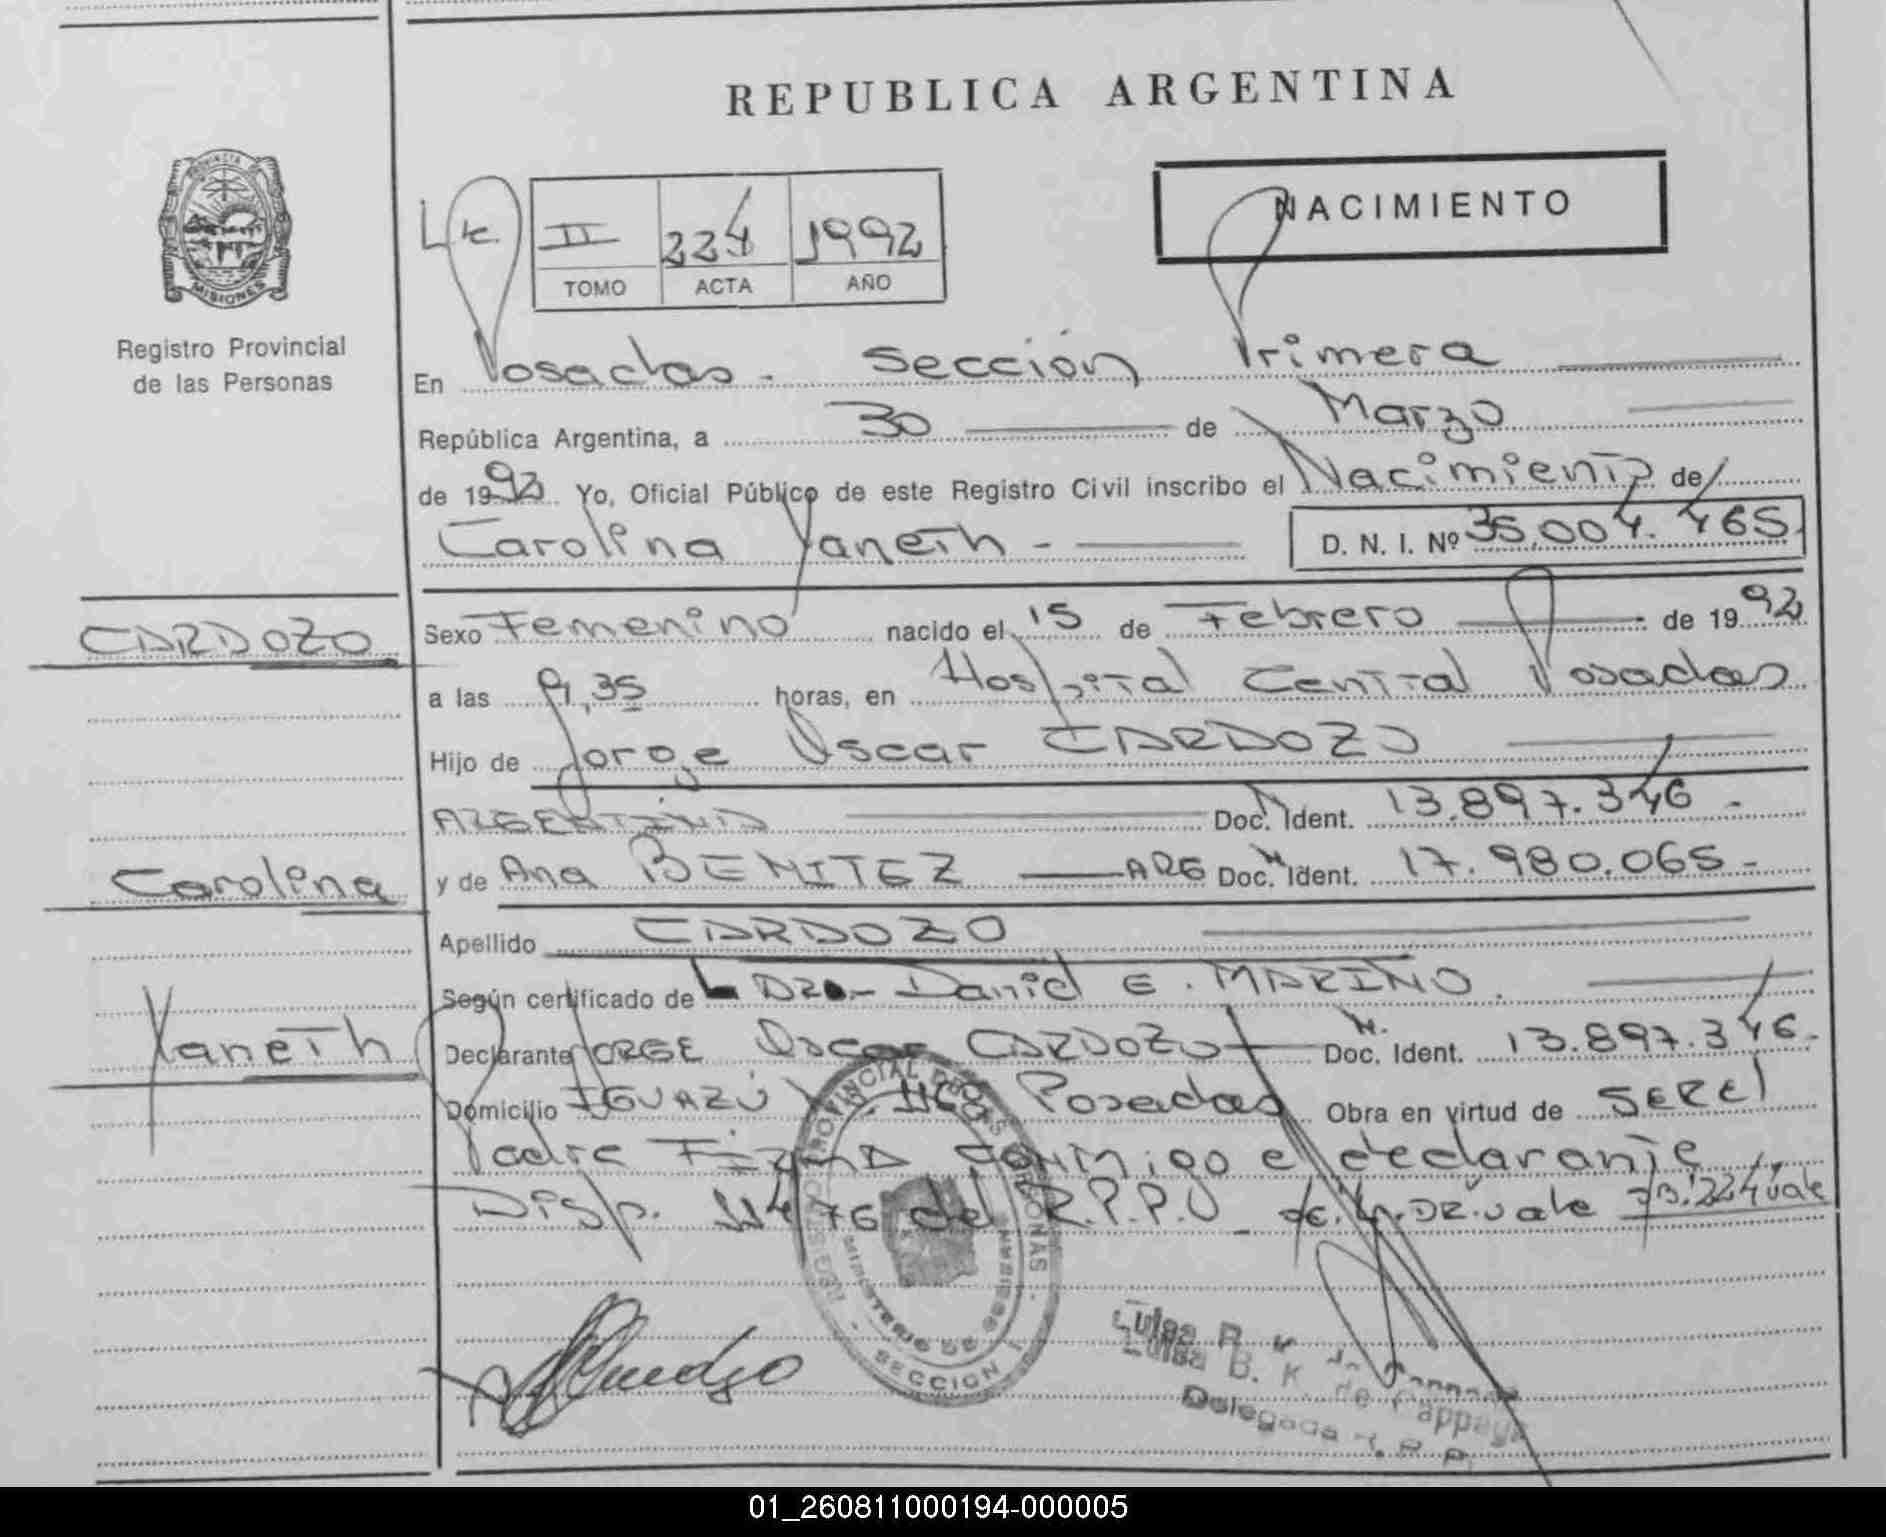 REPUBLICA ARGENTINA
PROVINCIA DE
MISIONES
Registro Provincial
de las Personas
NACIMIENTO
II 224 1992
TOMO ACTA AÑO
En Posadas. Sección Primera
República Argentina, a 30 de Marzo
de 1992 Yo, Oficial Público de este Registro Civil inscribo el Nacimiento de
Carolina Yaneth - D. N. I. Nº 35.004.465.
CARDOZO
Sexo Femenino nacido el 15 de Febrero de 1992
a las 9,35 horas, en Hospital Central Posadas
Hijo de Jorge Oscar CARDOZO
ARGENTINA Doc. Ident. 13.897.346-
Carolina
y de Ana BENITEZ ARG Doc. Ident. 17.980.065-
Apellido CARDOZO
Según certificado de Daniel E. MARIÑO.
Yaneth
Declarante JORGE Oscar CARDOZO Doc. Ident. 13.897.346-
Domicilio IGUAZÚ Posadas Obra en virtud de SER el
Padre FIRMA conmigo el declarante
Disp. 114/76 del R.P.P. vale 224 vale
REGISTRO PROVINCIAL DE LAS PERSONAS
MINISTERIO DE
SECCION 1
Luisa B. K. de Pappaya
Delegada R. P. P.
01_260811000194-000005